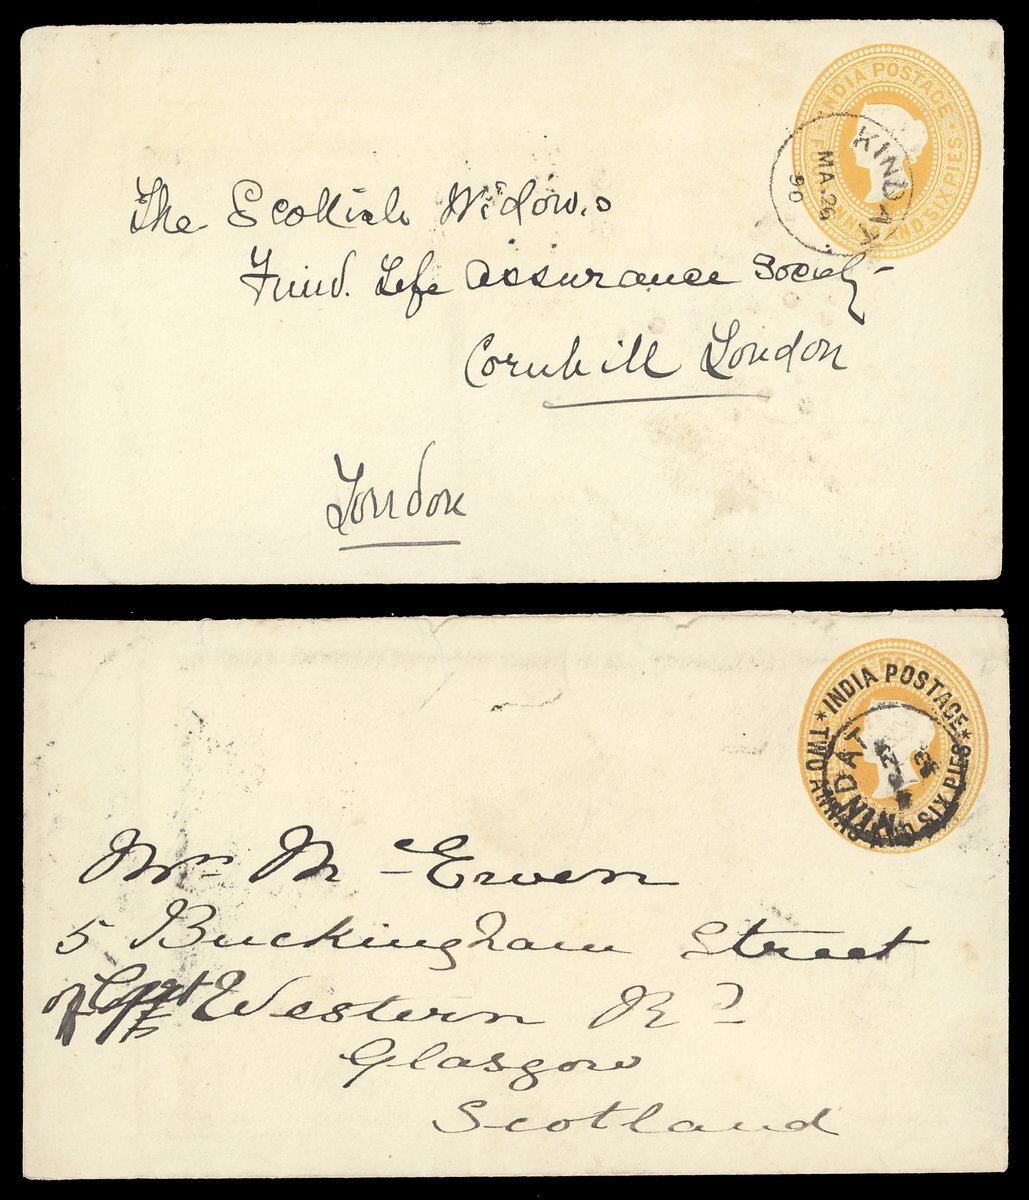 INDIA POSTAGE
FOUR ANNAS AND SIX PIES
KINDAT
MA.26
90
The Scottish Widows
Fund. Life Assurance Society
Cornhill London
London
INDIA POSTAGE
TWO ANNAS AND SIX PIES
KINDAT
Mrs. Mc Ewen
5 Buckingham Street
Western Rd
Glasgow
Scotland